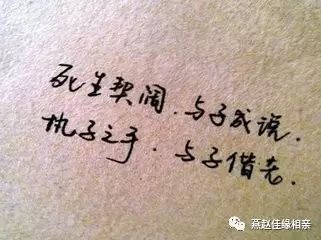 死生契阔.与子成说.
执子之手.与子偕老.
燕赵佳缘相亲